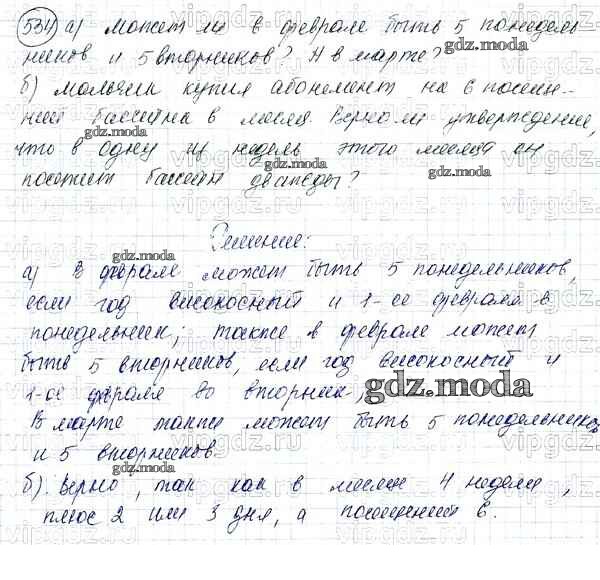 534) а) Может ли в феврале быть 5 понедель-
ников и 5 вторников? А в марте?
б) мальчик купил абонемент на 6 посеще-
ний бассейна в месяц. Верно ли утверждение,
что в одну из недель этого месяца он
посетит бассейн дважды?
Решение:
а) В феврале может быть 5 понедельников,
если год високосный и 1-ое февраля в
понедельник; также в феврале может
быть 5 вторников, если год високосный и
1-ое февраля во вторник,
В марте также может быть 5 понедельников
и 5 вторников
б). Верно, так как в месяце 4 недели,
плюс 2 или 3 дня, а посещений 6.
gdz.moda
vipgdz.ru